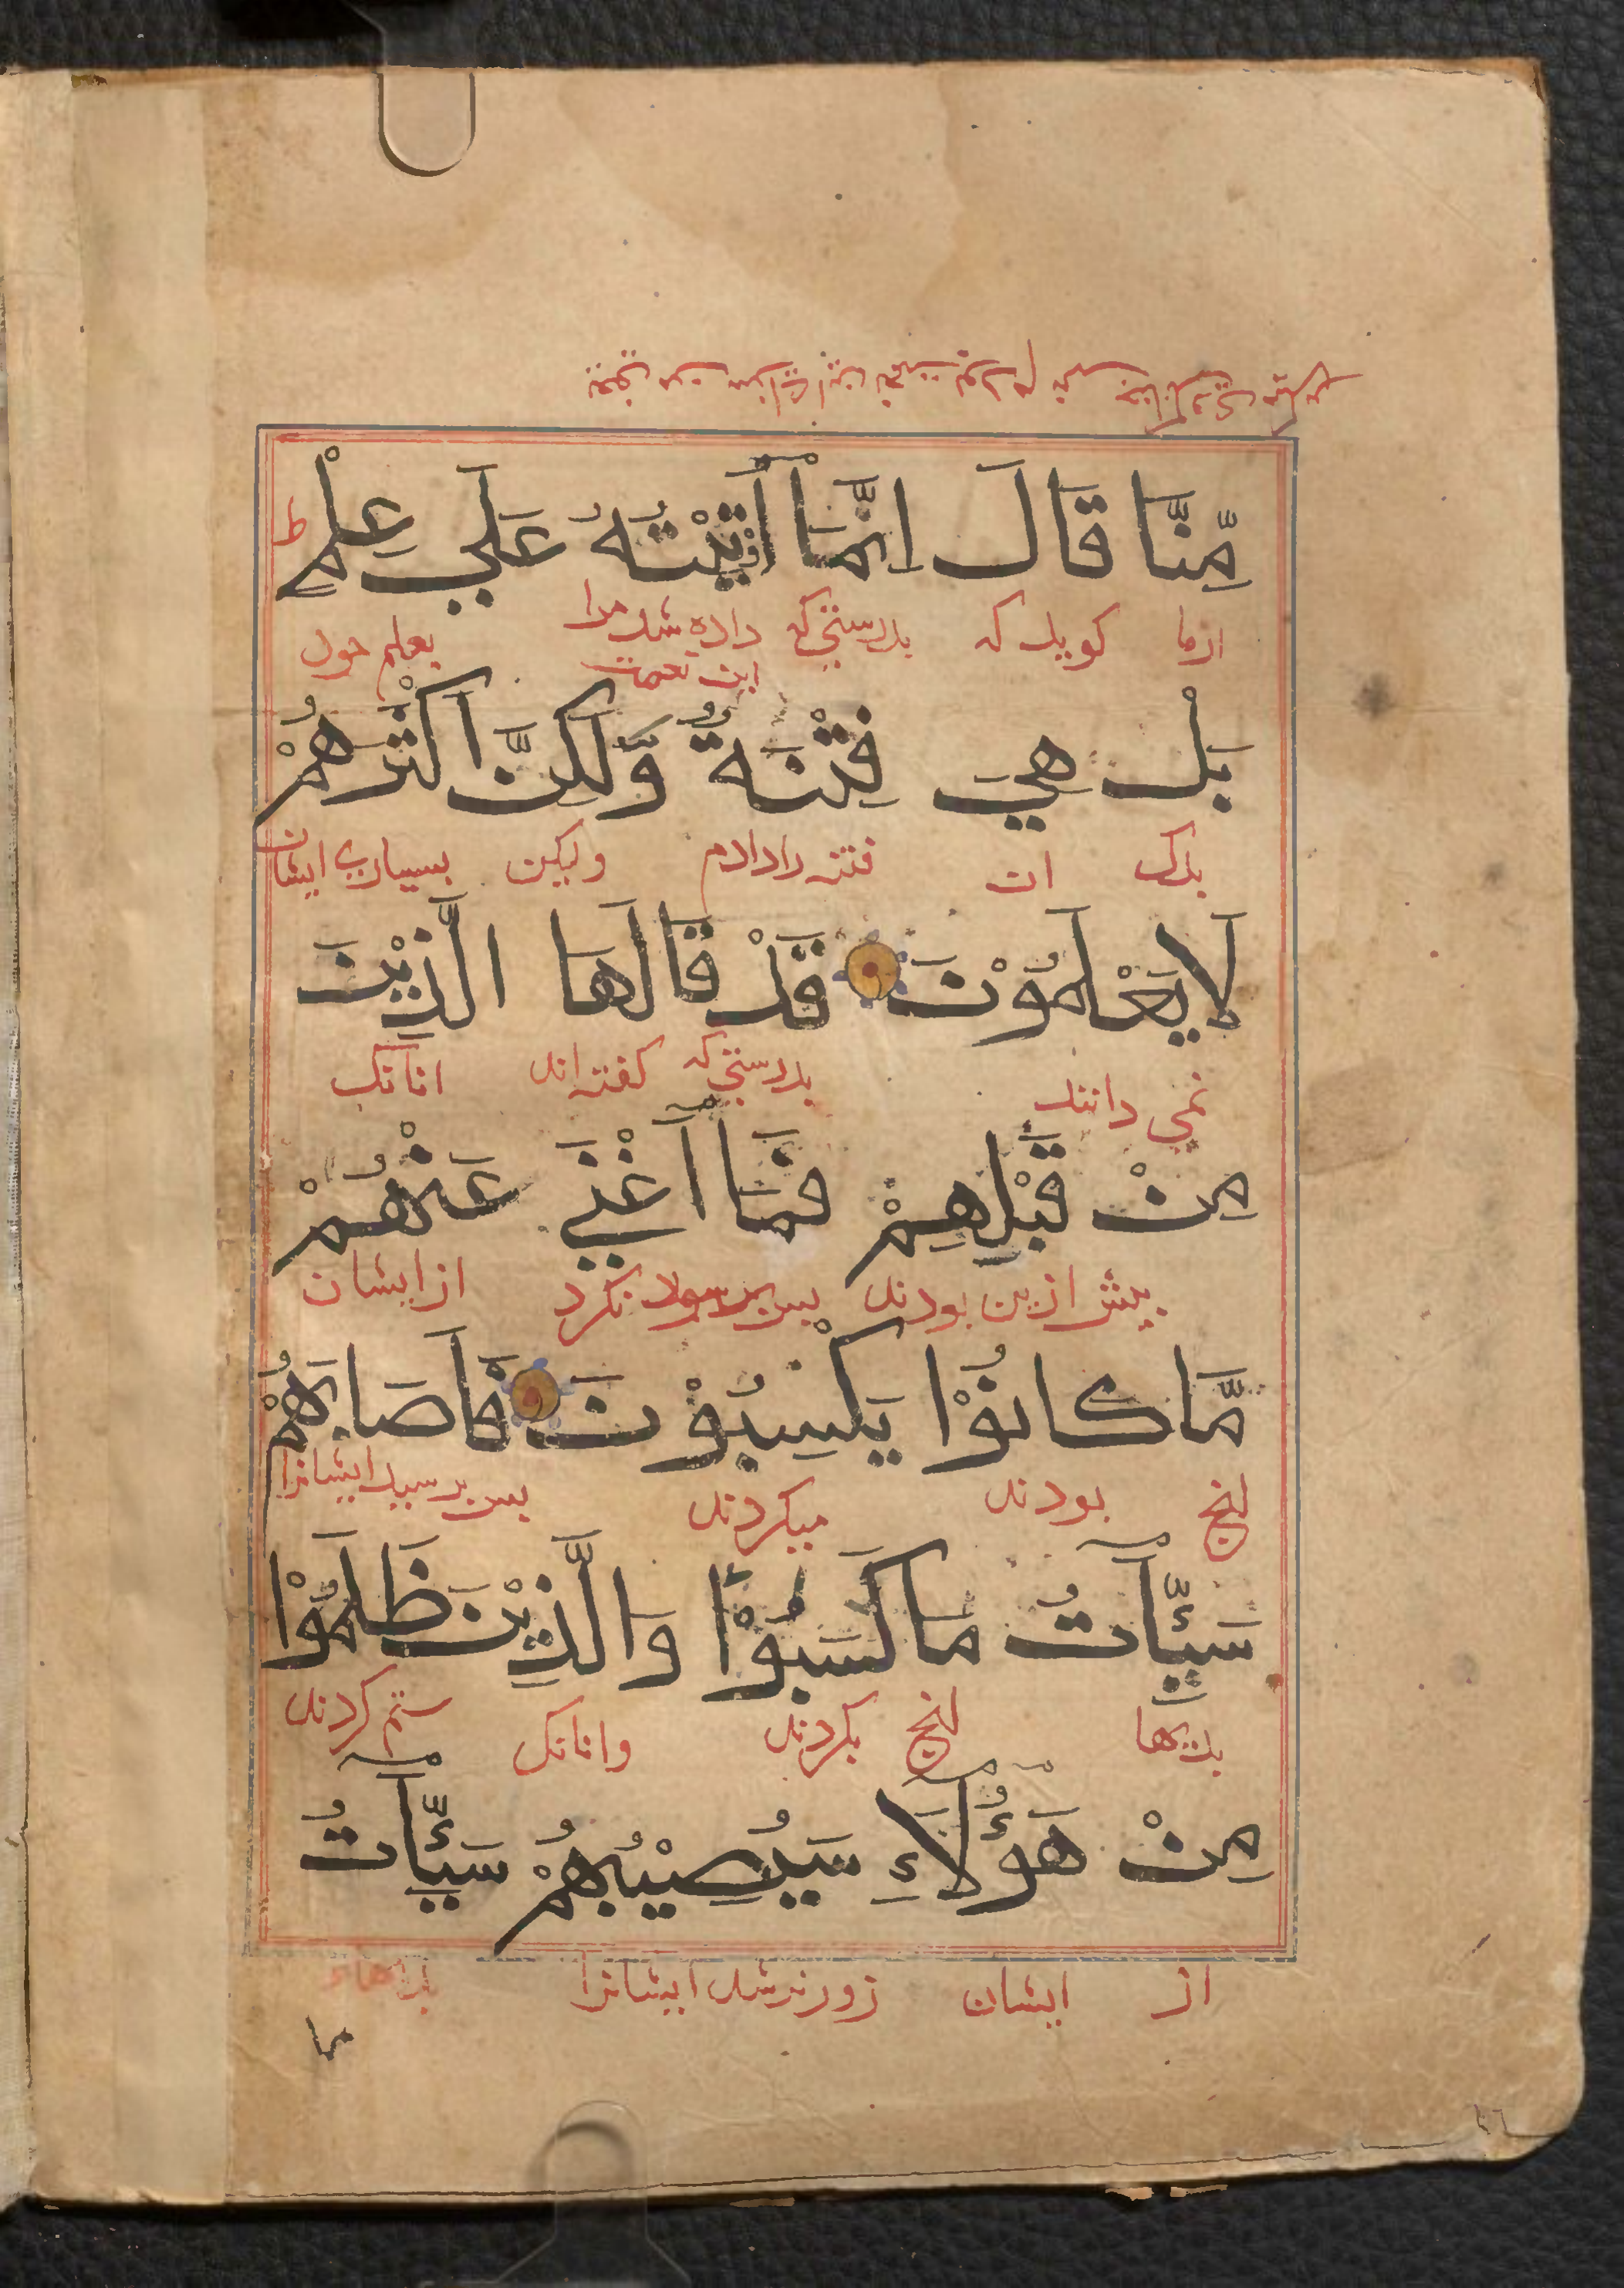 مِّنَّا قَالَ اِنَّمَآ اُتِيْتُهُ عَلَي عِلْمٍ ط
ازما كويد كه بدرستي كه داده شد مرا بعلم خود
اين نعمت
بَلْ هِيَ فِتْنَةٌ وَّلَكِنَّ اَكْثَرَهُمْ
بلك ان فتنه را دادم وليكن بسياري ايشان
لَا يَعْلَمُوْنَ قَدْ قَالَهَا الَّذِيْنَ
نمي دانند بدرستي كه كفته اند انانك
مِنْ قَبْلِهِمْ فَمَآ اَغْنَي عَنْهُمْ
پيش ازين بودند پس سود نكرد از ايشان
مَّا كَانُوْا يَكْسِبُوْنَ فَاَصَابَهُمْ
انچ بودند ميكردند پس برسيد ايشانرا
سَيِّئَاتُ مَا كَسَبُوْا وَالَّذِيْنَ ظَلَمُوْا
بديها انچ بكردند وانانك ستم كردند
مِنْ هَؤُلَآءِ سَيُصِيْبُهُمْ سَيِّئَاتُ
از ايشان زود برسد ايشانرا بديهاء
ما